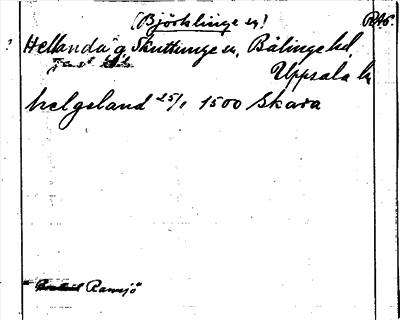 (Björklinge sn!)
? Hellanda g Skuttunge sn, Bälinge hd,
Uppsala ln
helgeland 25/1 1500 Skara
" Ramsjö"